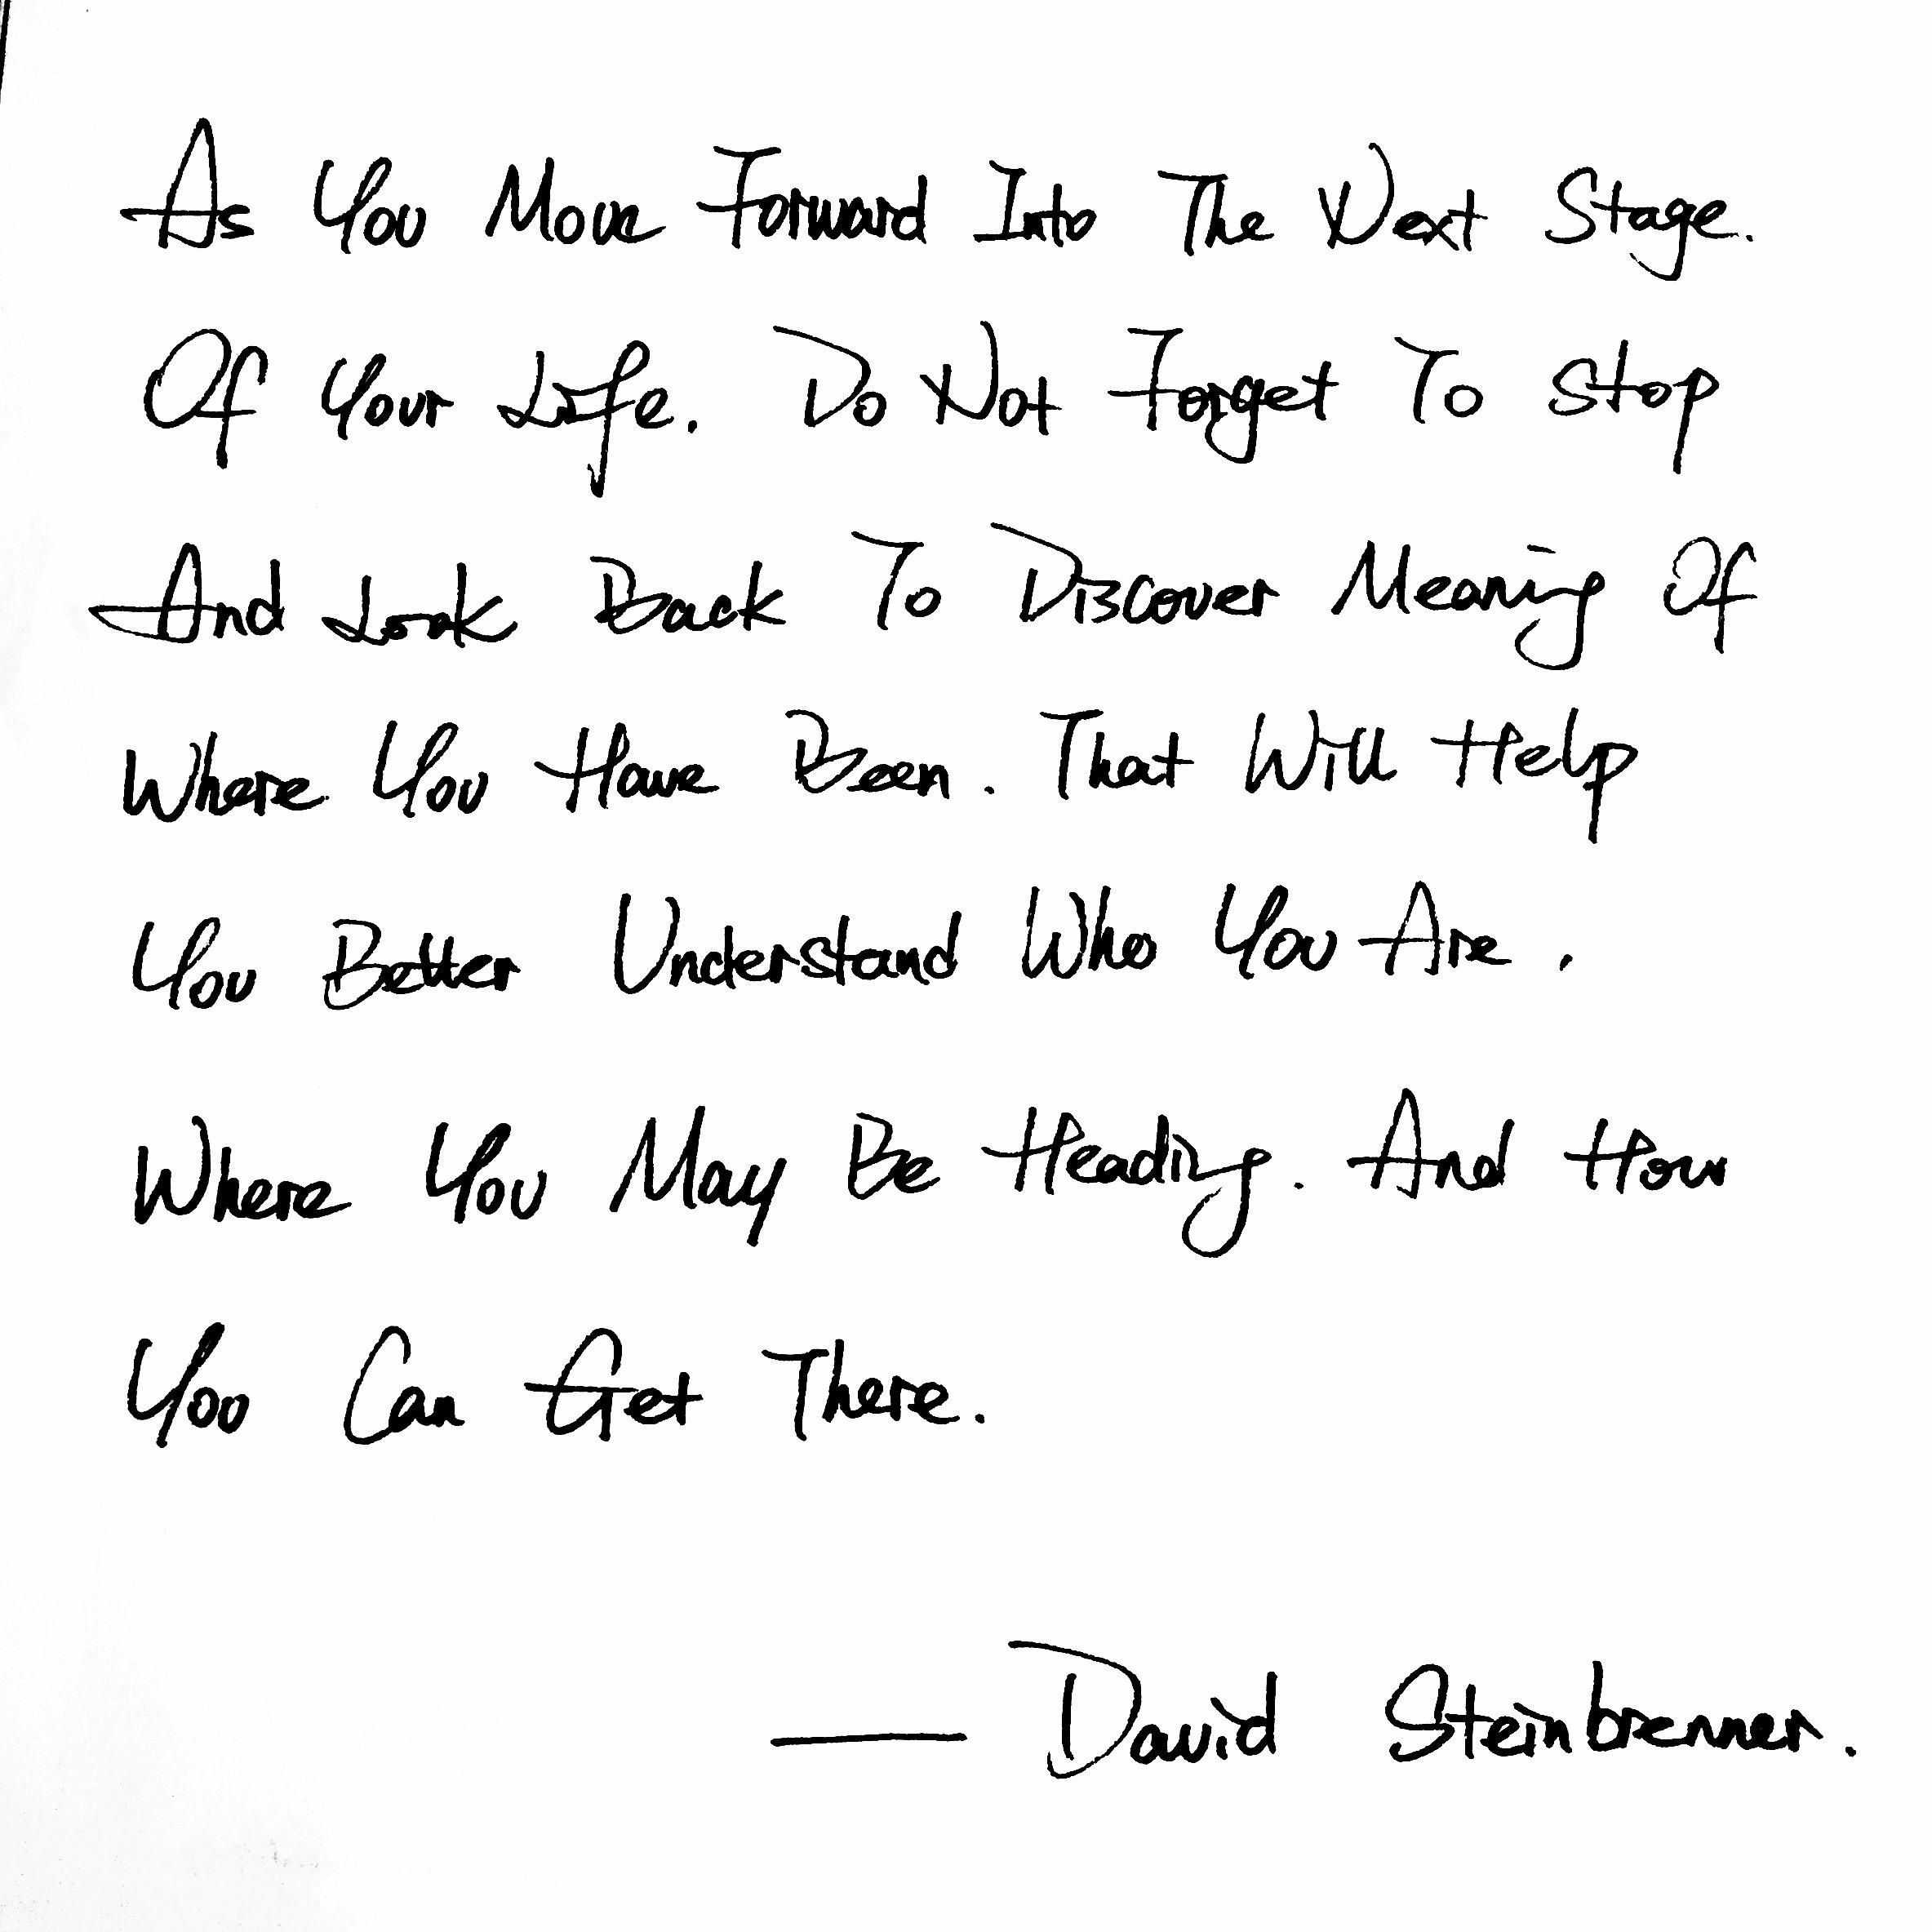 As You Move Forward Into The Next Stage.
Of Your Life. Do Not Forget To Stop
And Look Back To Discover Meaning Of
Where You Have Been. That Will Help
You Better Understand Who You Are.
Where You May Be Heading. And How
You Can Get There.
— David Steinbrenner.